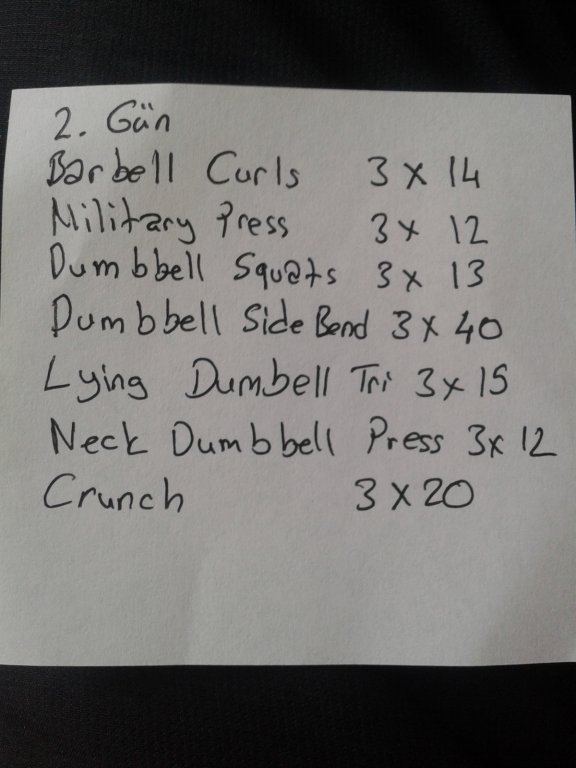 2. Gün
Barbell Curls 3 x 14
Military Press 3 x 12
Dumbbell Squats 3 x 13
Dumbbell Side Bend 3 x 40
Lying Dumbell Tri 3 x 15
Neck Dumbbell Press 3x 12
Crunch 3 x 20